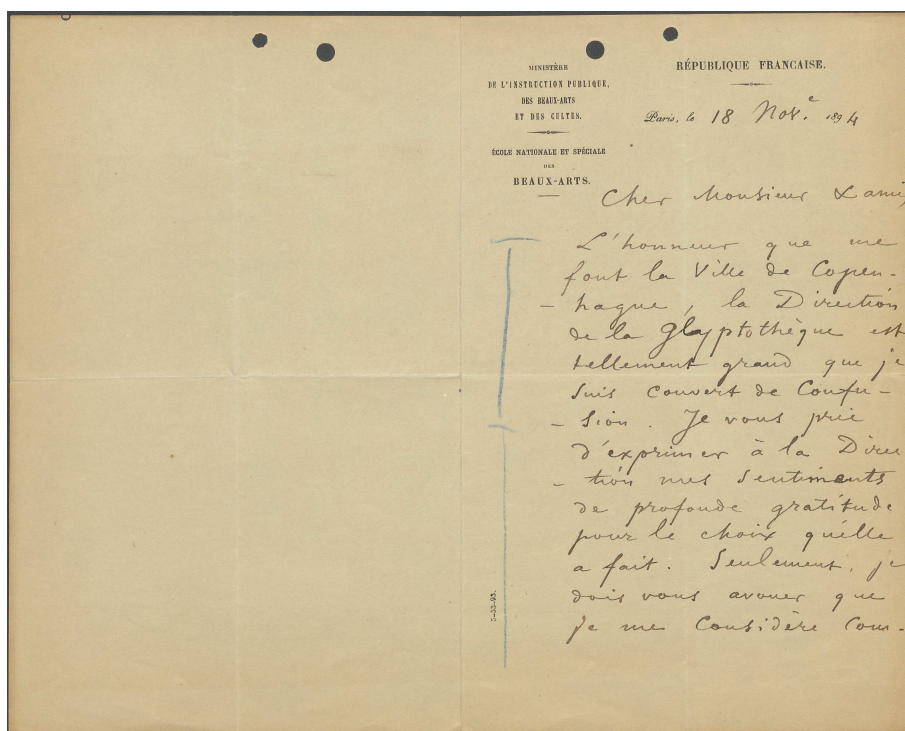 MINISTÈRE
DE L'INSTRUCTION PUBLIQUE,
DES BEAUX-ARTS
ET DES CULTES.
ÉCOLE NATIONALE ET SPÉCIALE
DES
BEAUX-ARTS.
RÉPUBLIQUE FRANCAISE.
Paris, le 18 Nov.e 1894
Cher Monsieur Lami,
L'honneur que me
font la Ville de Copen-
- hague, la Direction
de la Glyptothèque est
tellement grand que je
suis couvert de Confu-
- sion. Je vous prie
d'exprimer à la Direc
- tion mes sentiments
de profonde gratitude
pour le choix qu'elle
a fait. Seulement, je
dois vous avouer que
je me Considère Com-
5-53-93.